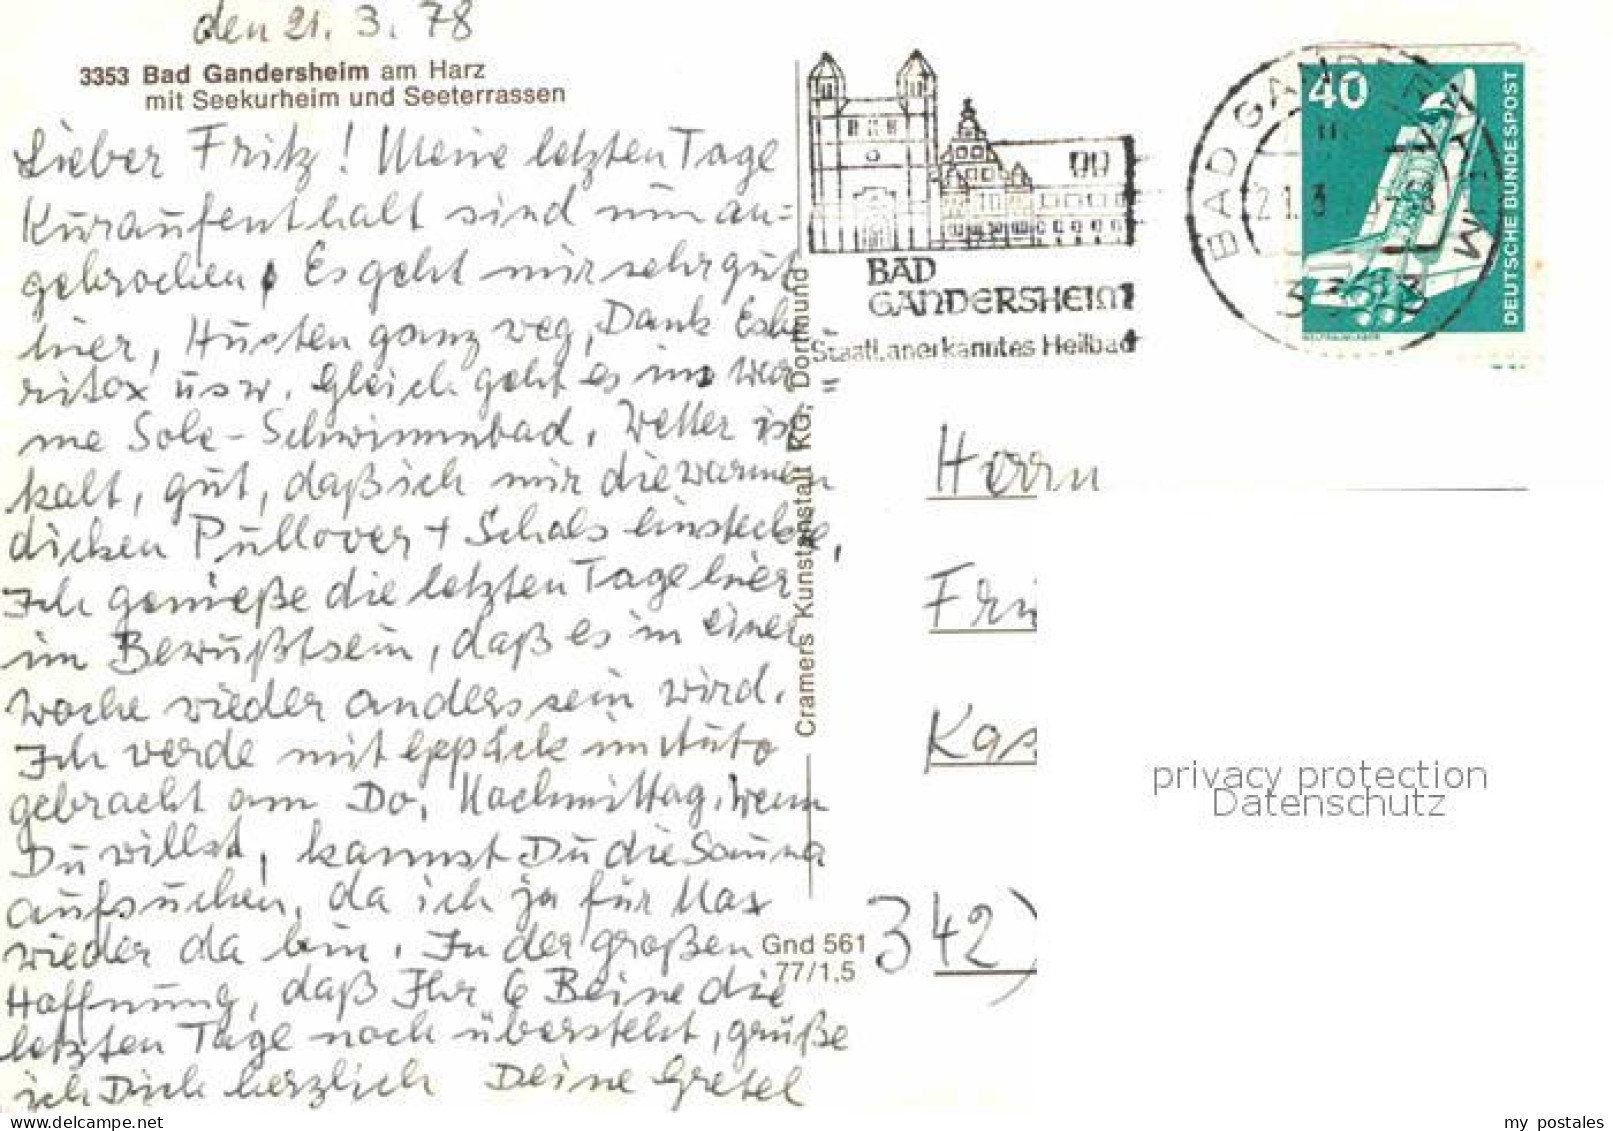 den 21. 3. 78
3353 Bad Gandersheim am Harz
mit Seekurheim und Seeterrassen
Lieber Fritz! Meine letzten Tage
Kuraufenthalt sind nun an=
gebrochen. Es geht mir sehr gut
hier, Husten ganz weg, Dank Esbe
ritox usw. Gleich geht es ins war=
me Sole-Schwimmbad. Wetter ist
kalt, gut, daß ich mir die warmen
dicken Pullover + Schals einsteckte,
Ich genieße die letzten Tage hier
im Bewußtsein, daß es in einer
Woche wieder anders sein wird.
Ich werde mit Gepäck im Auto
gebracht am Do. Nachmittag. Wenn
Du willst, kannst Du die Sauna
aufsuchen, da ich ja für Max
wieder da bin. In der großen
Hoffnung, daß Ihr 6 Beine die
letzten Tage noch übersteht, grüße
ich Dich herzlich Deine Gretel
Cramers Kunstanstalt KG, Dortmund
Gnd 561
77/1,5
BAD
GANDERSHEIM
Staatl. anerkanntes Heilbad
BAD GANDERSHEIM
21.3
3353
40
DEUTSCHE BUNDESPOST
Herrn
Fri
Kas
342)
privacy protection
Datenschutz
my postales